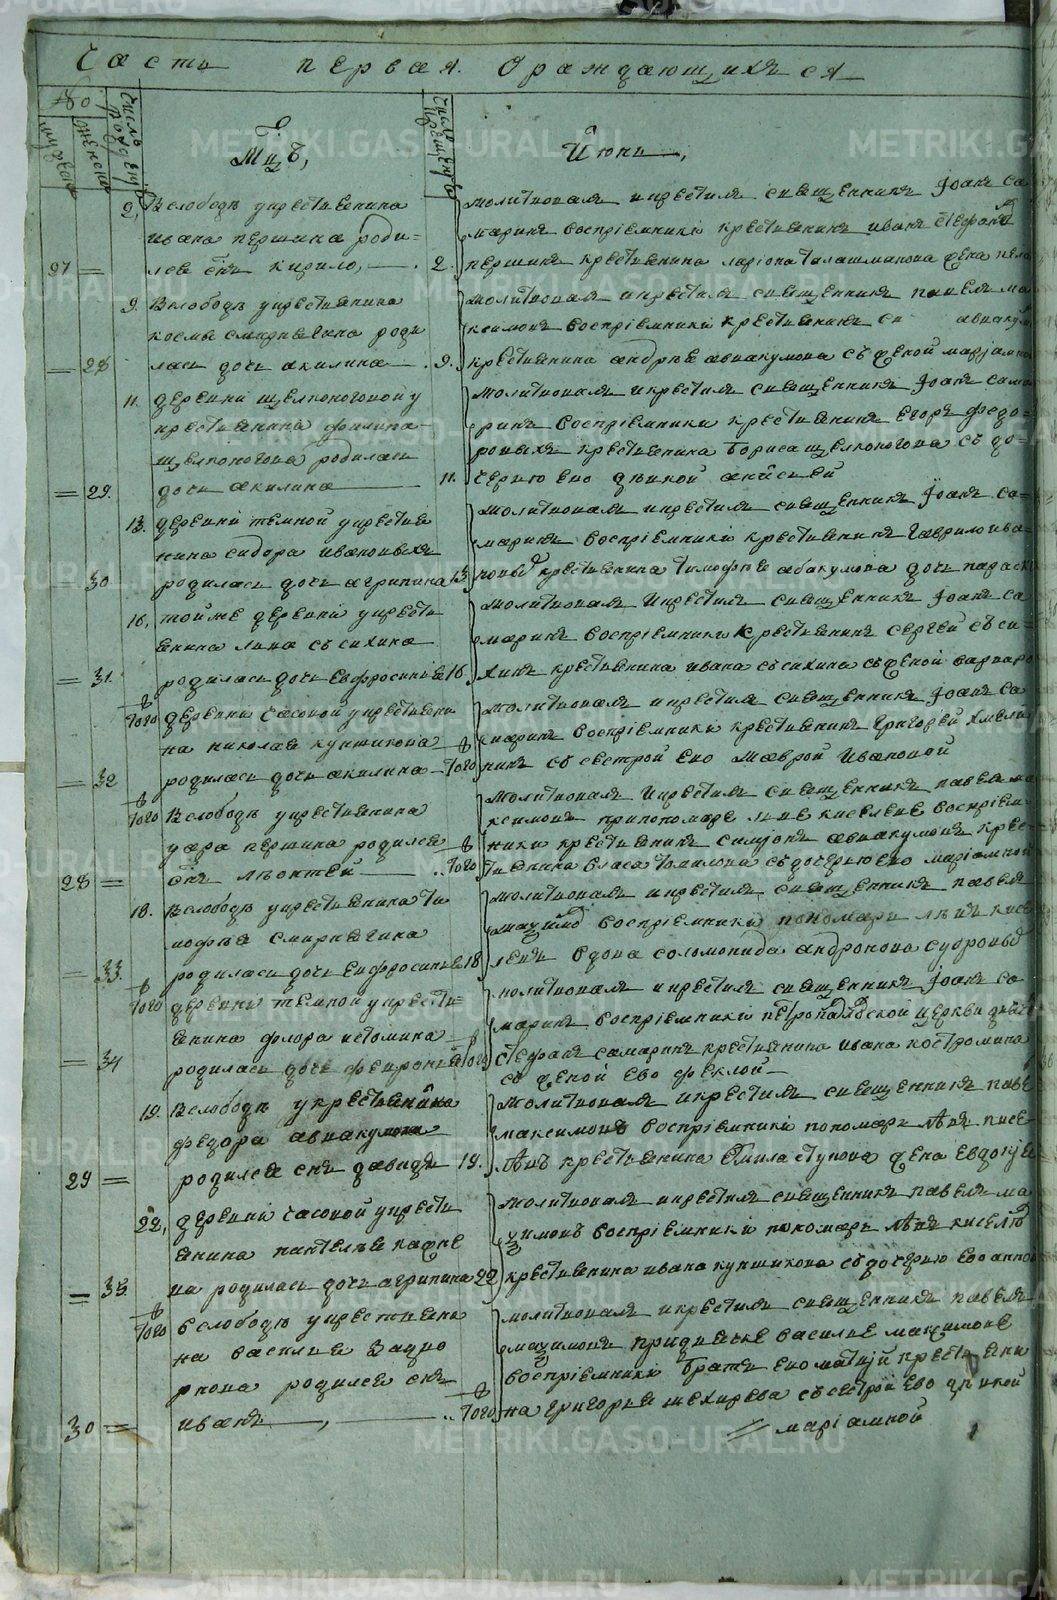 Часть первая О раждающихся
Мцъ, Июнь,
2, В слободѣ у крестьянина
ивана першина роди=
27 = лся снъ кирило, 2.
молитвовалъ и крестилъ священникъ Iоанъ са
маринъ воспрiемники крестьянинъ иванъ стефановъ
першинъ крестьянина ларiона талашманова жена пела
9. В слободѣ у крестьянина
космы смирнягина роди
= 28 лась дочь акилина 9.
молитвовалъ и крестилъ священникъ павелъ ма
ксимовъ воспрiемники крестьянинъ авакум
крестьянина андрѣя авакумова съ женой марiамно
11. деревни щелконоговой у
крестьянина филипа
щелконогова родилась
= 29. дочь акилина 11.
молитвовалъ и крестилъ священникъ Iоанъ сама
ринъ воспрiемники крестьянинъ егоръ федо=
ровыхъ крестьянина бориса щелконогова съ до=
черью ево дѣвкой анисьей
13. деревни темной у крестья
нина сидора ивановыхъ
= 30 родилась дочь агрипина 13
молитвовалъ и крестилъ священникъ Iоанъ са=
маринъ воспрiемники крестьянинъ гаврило ива=
новъ крестьянина тимофѣя абакумова дочь параск
16, той же деревни у кресть
янина лина съсихина
= 31. родилась дочь евфросинья 16.
молитвовалъ и крестилъ священникъ Iоанъ са
маринъ воспрiемники крестьянинъ сергѣй съси
хинъ крестьянина ивана съсихина съ женой варваро
в того деревни часовой у крестьяни
на николая купшикова в
= 32 родилась дочь акилина того
молитвовалъ и крестилъ священникъ Iоанъ са
маринъ воспрiемники крестьянинъ григорей хмели
нинъ съ сестрой ево маврой ивановой
в того В слободѣ у крестьянина
уара першина родился в
28 = снъ лѣонтей того
молитвовалъ и крестилъ священникъ павелъ ма
ксимовъ при пономаре лье киселеве воспрiем
ники крестьянинъ симионъ авакумовъ крес=
тьянина власа томилова съ дочерью ево марiамной
18. В слободѣ у крестьянина ти
мофѣя смирнягина
= 33. родилась дочь евфросинья 18
молитвовалъ и крестилъ священникъ павелъ
максимовъ воспрiемники пономарь лѣвъ кисе
левъ вдова соломонида андронова суворовыхъ
в того деревни темной у кресть=
янина флора истомина в
= 34 родилась дочь феврония того
молитвовалъ и крестилъ священникъ Iоанъ са
маринъ воспрiемники петропавловской церкви дьячо
стефанъ самаринъ крестьянина ивана костромина
съ женой ево феклой
19. В слободѣ у крестьянина
федора авакумова
29 = родился снъ давидъ 19.
молитвовалъ и крестилъ священникъ паве
максимовъ воспрiемники пономарь лѣвъ кисе
левъ крестьянина ступова жена евдокия
22, деревни часовой у кресть
янина пантелѣя каюне
= 35 ва родилась дочь агрипина 22
молитвовалъ и крестилъ священникъ павелъ ма
ксимовъ воспрiемники пономарь лѣвъ киселевъ
крестьянина ивана купшикова съ дочерью ево анной
в того В слободѣ у крестьяни
на василия задно
рнова родился снъ в
30 = иванъ, того
молитвовалъ и крестилъ священникъ павелъ
максимовъ при дьячке василие максимове
воспрiемники братъ ево матвiй крестьяни
на григорья шехирева съ сестрой ево дѣвкой
марiамной
METRIKI.GASO-URAL.RU